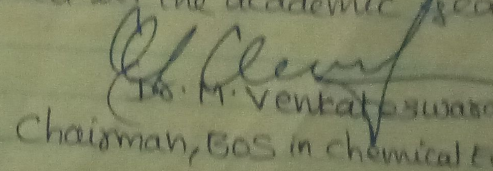 the academic
Dr. M. Venkateswar
Chairman, BOS in chemical E